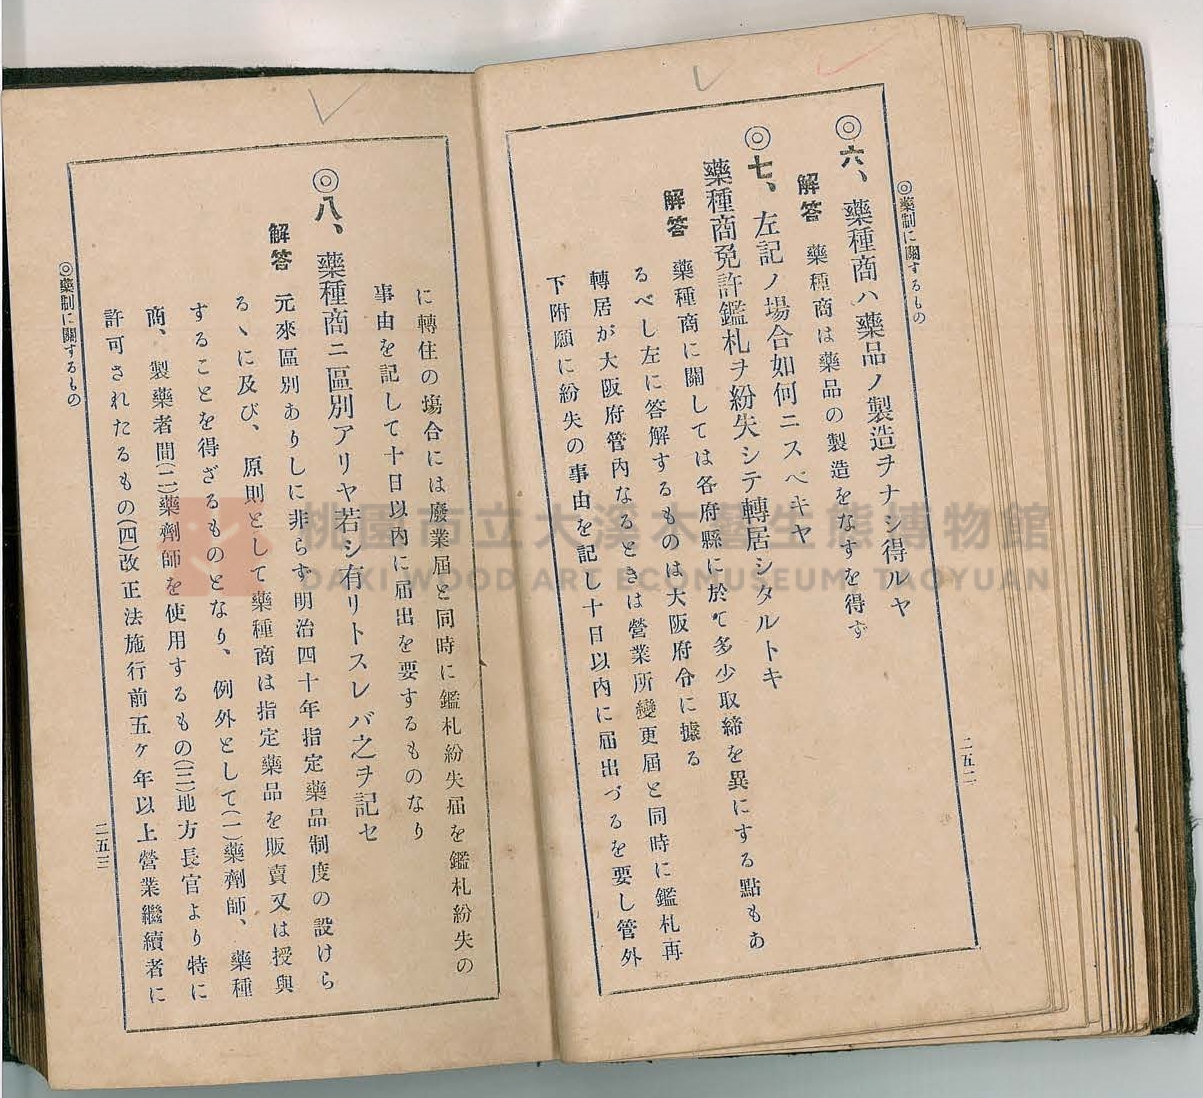 ◎藥制に關するもの
二五二
◎六、藥種商ハ藥品ノ製造ヲナシ得ルヤ
解答 藥種商は藥品の製造をなすを得ず
◎七、左記ノ場合如何ニスベキヤ
藥種商免許鑑札ヲ紛失シテ轉居シタルトキ
解答 藥種商に關しては各府縣に於て多少取締を異にする點もあ
るべし左に答解するものは大阪府令に據る
轉居が大阪府管内なるときは營業所變更屆と同時に鑑札再
下附願に紛失の事由を記し十日以内に屆出づるを要し管外
に轉住の塲合には廢業屆と同時に鑑札紛失屆を鑑札紛失の
事由を記して十日以内に屆出を要するものなり
◎八、藥種商ニ區別アリヤ若シ有リトスレバ之ヲ記セ
解答 元來區別ありしに非らず明治四十年指定藥品制度の設けら
るヽに及び、原則として藥種商は指定藥品を販賣又は授與
することを得ざるものとなり、例外として(一)藥劑師、藥種
商、製藥者間(二)藥劑師を使用するもの(三)地方長官より特に
許可されたるもの(四)改正法施行前五ヶ年以上營業繼續者に
◎藥制に關するもの
二五三
桃園市立大溪木藝生態博物館
DAXI WOOD ART ECOMUSEUM, TAOYUAN